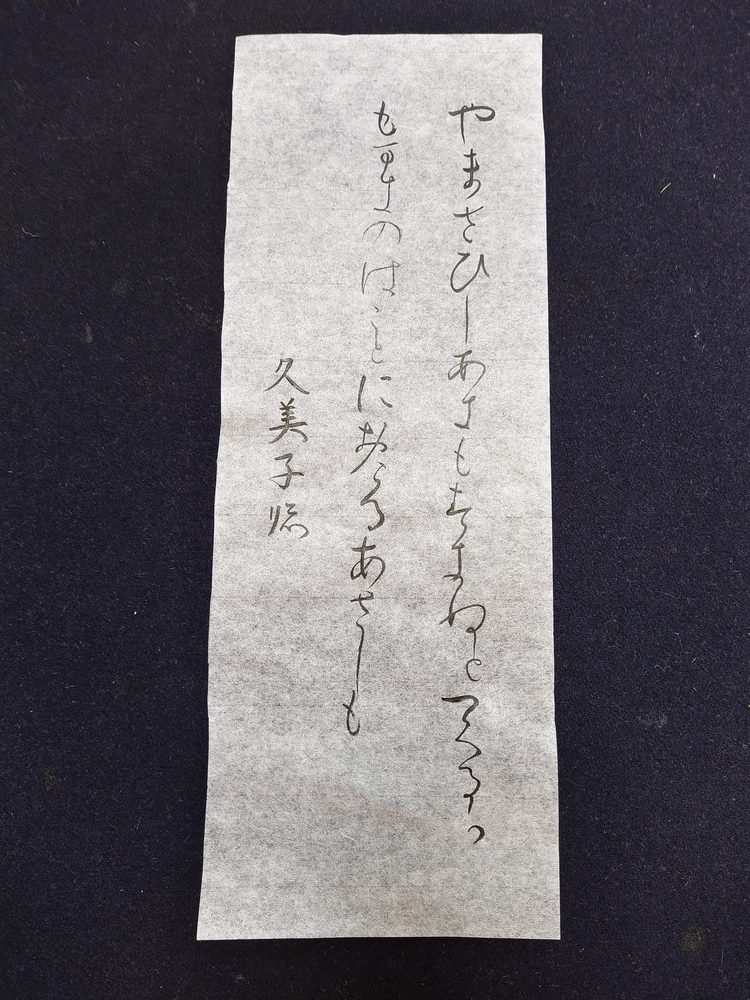 やまさひしあきもすきぬとつくるか
もまきのはことにおけるあさしも
久美子臨